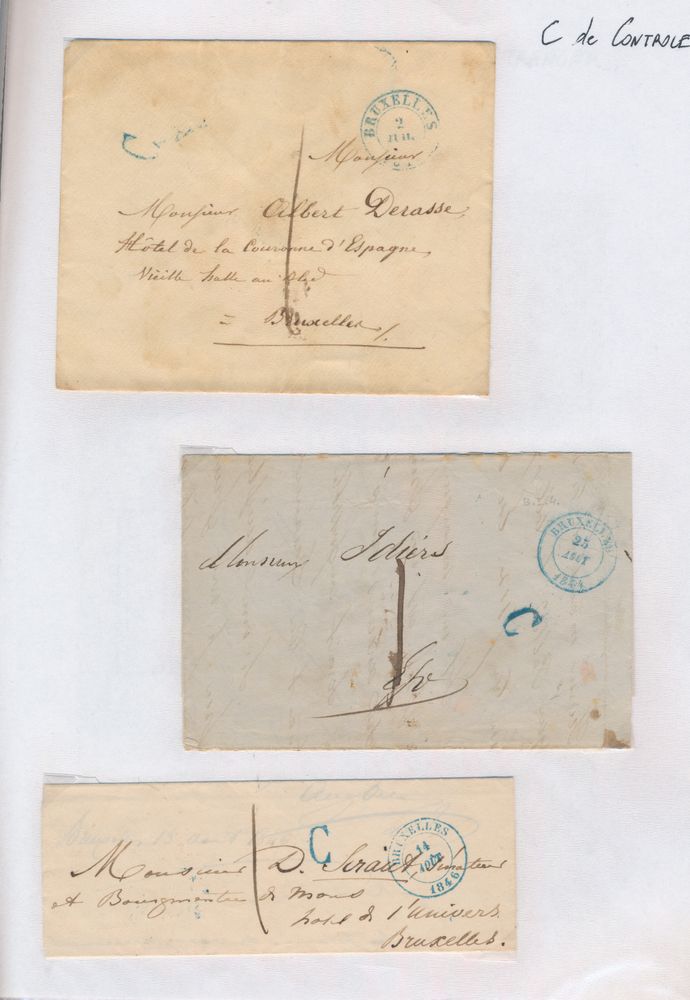 C de CONTROLE
BRUXELLES
2
JUIL
C
Monsieur
Monsieur Albert Derasse
Hôtel de la Couronne d'Espagne
Vieille halle au bled
= Bruxelles /
1
B.E.4.
BRUXELLES
25
AOUT
1844
Monsieur Idiers
1
C
E/v
C
BRUXELLES
14
AOUT
1846
Monsieur D. Sénateur
et Bourgmestre de Mons
hotel de l'univers
Bruxelles.
1